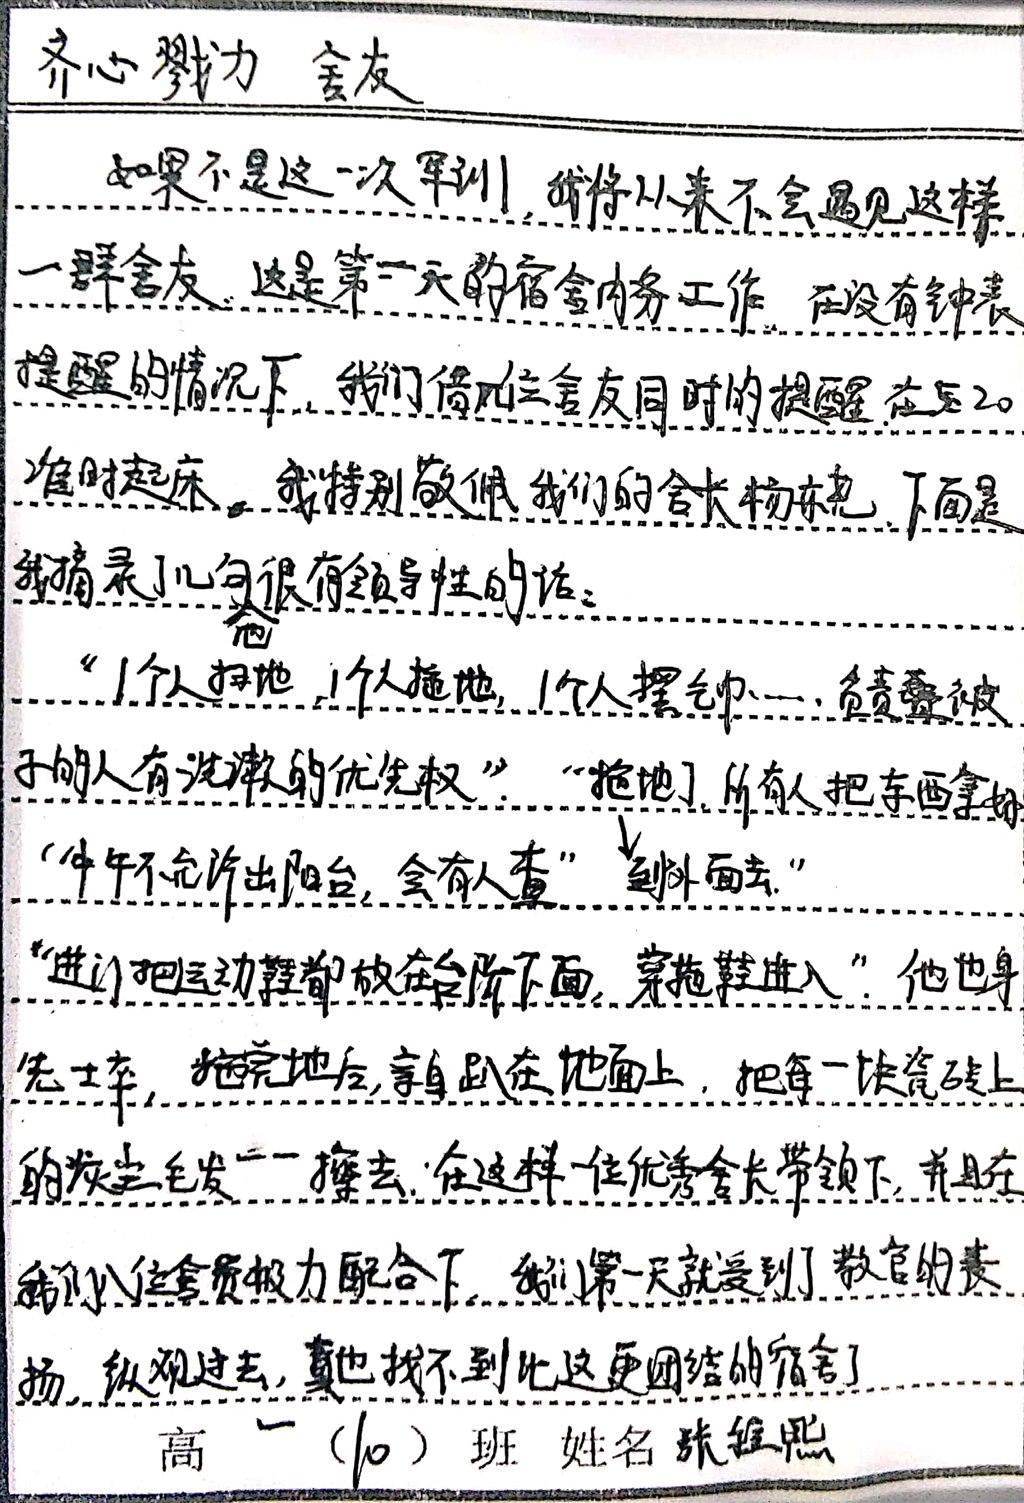 齐心戮力 舍友
如果不是这一次军训,我将从来不会遇见这样
一群舍友.这是第一天的宿舍内务工作.在没有钟表
提醒的情况下,我们借几位舍友同时的提醒.在5:20
准时起床。我特别敬佩我们的舍长杨东,下面是
我摘录了几句很有领导性的话:
他
“1个人扫地,1个人拖地,1个人摆毛巾……,负责叠被
子的人有洗漱的优先权”.“拖地了,所有人把东西拿好
“中午不允许出阳台,会有人查” 到外面去.”
“进门把运动鞋都放在台阶下面,穿拖鞋进入”.他也身
先士卒,拖完地后,亲自趴在地面上,把每一块瓷砖上
的灰尘毛发一一擦去.在这样一位优秀舍长带领下,并且在
我们八位舍员极力配合下,我们第一天就受到了教官的表
扬,纵观过去,真也找不到比这更团结的宿舍了
高一(10)班 姓名张